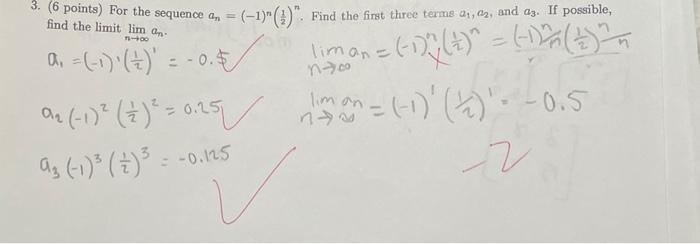 3. (6 points) For the sequence aₙ = (-1)ⁿ(1/2)ⁿ. Find the first three terms a₁, a₂, and a₃. If possible,
find the limit lim n→∞ aₙ.
a₁ = (-1)¹(1/2)¹ = -0.5 ✓
a₂ (-1)² (1/2)² = 0.25 ✓
a₃ (-1)³ (1/2)³ = -0.125 ✓
lim n→∞ aₙ = (-1)ⁿ (1/2)ⁿ = (-1)ⁿ/ⁿ (1/2)ⁿ/ⁿ
lim n→∞ aₙ = (-1)¹ (1/2)¹ = -0.5
-2